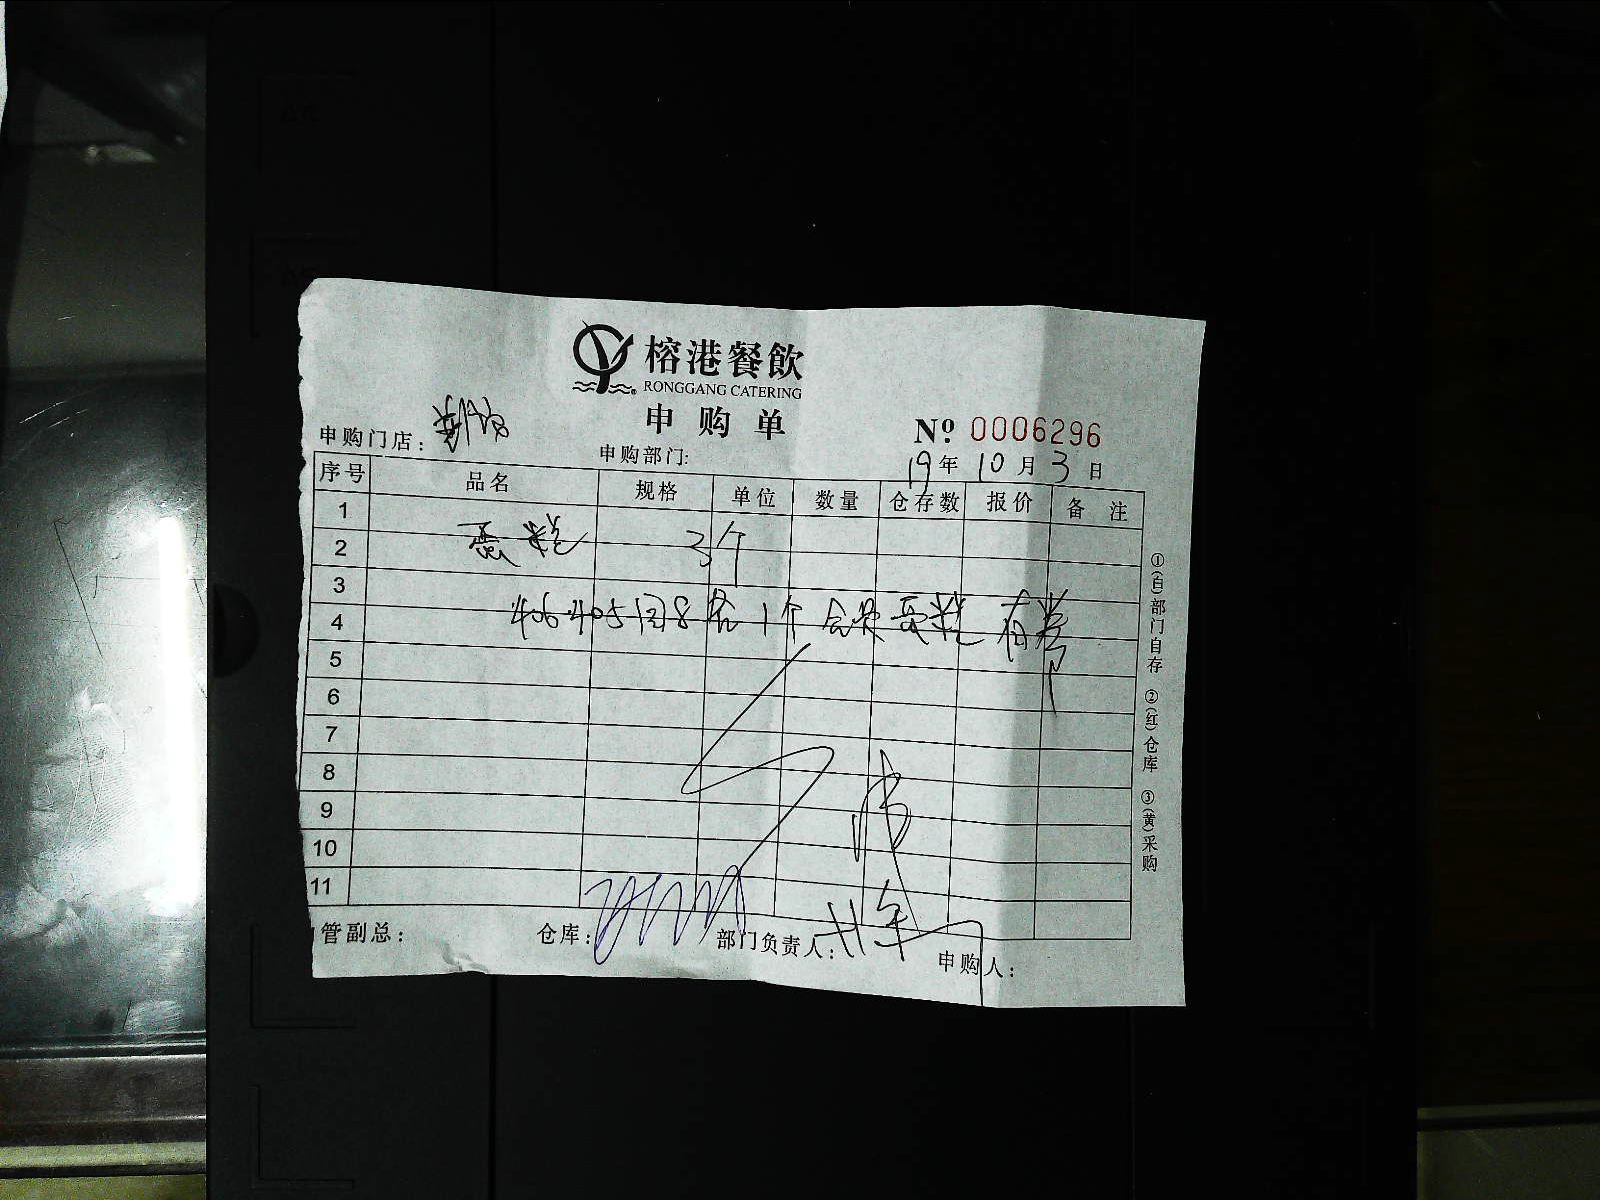 榕港餐飲
RONGGANG CATERING
申购单
申购门店：
申购部门:
Nº 0006296
19年10月3日
序号 品名 规格 单位 数量 仓存数 报价 备注
1
2 蛋糕 3个
3
4 406 405 8 1个 蛋糕 有
5
6
7
8
9
10
11
①(白)部门自存 ②(红)仓库 ③(黄)采购
管副总： 仓库： 部门负责人： 申购人：